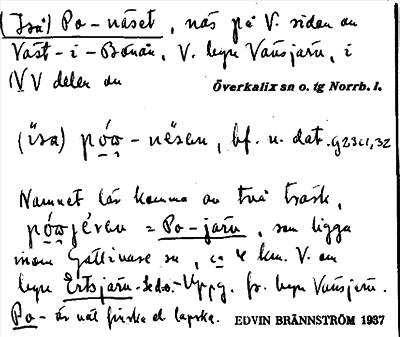 (Isa) Po-näset, näs på V. sidan av
Väst-i-Bönån, V. byn Vänsjärv, i
NV delen av Överkalix sn o. tg Norrb. l.
(ïsa) pó̤o̤-nësən, bf. n. dat.
Namnet lär komma av två träsk,
pó̤o̤jérəv = Po-järv, som ligga
inom Gällivare sn, ca 4 km. V. om
byn Ertsjärv. Uppg. fr. byn Vänsjärv.
Po- är väl finska el lapska. EDVIN BRÄNNSTRÖM 1937